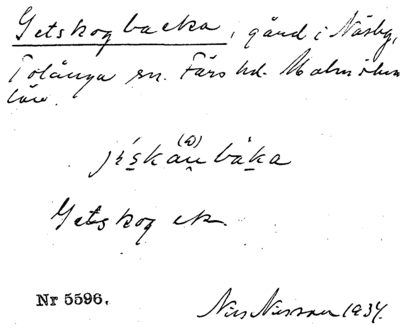 Getskogbacka, gård i Näsby,
Tolånga sn. Färs hd. Malmöhus
län.
Getskog ek.
Nr 5596.
Nils Nilsson 1934.